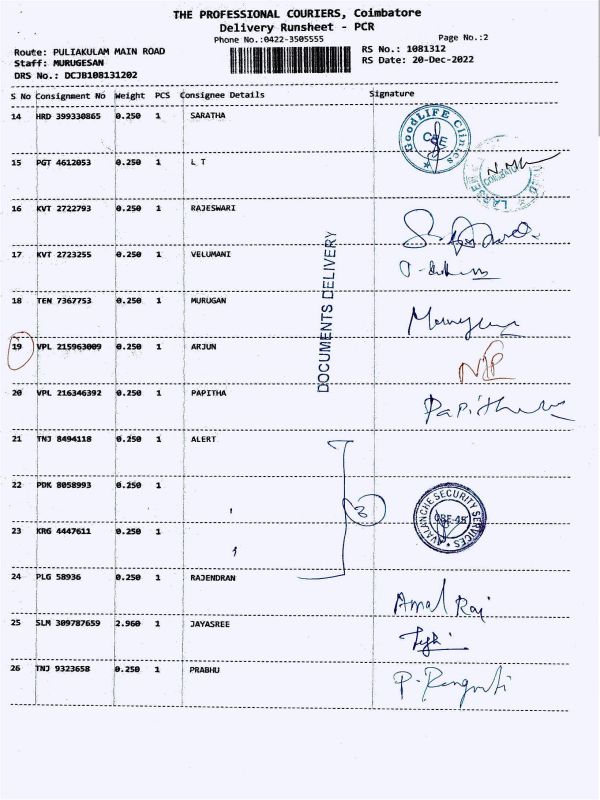 THE PROFESSIONAL COURIERS, Coimbatore
Delivery Runsheet - PCR
Phone No.:0422-3505555
Page No.:2
Route: PULIAKULAM MAIN ROAD
RS No.: 1081312
Staff: MURUGESAN
RS Date: 20-Dec-2022
DRS No.: DCJB108131202
S No Consignment No Weight PCS Consignee Details Signature
14 HRD 399330865 0.250 1 SARATHA
GoodLIFE Clinics CBE
15 PGT 4612053 0.250 1 L T
16 KVT 2722793 0.250 1 RAJESWARI
17 KVT 2723255 0.250 1 VELUMANI
DOCUMENTS DELIVERY
18 TEN 7367753 0.250 1 MURUGAN
19 VPL 215963009 0.250 1 ARJUN
20 VPL 216346392 0.250 1 PAPITHA
21 TNJ 8494118 0.250 1 ALERT
22 PDK 8058993 0.250 1
3
AVALANCHE SECURITY SERVICES CBE-45
23 KRG 4447611 0.250 1
24 PLG 58936 0.250 1 RAJENDRAN Amal Raj
25 SLM 309787659 2.960 1 JAYASREE
26 TNJ 9323658 0.250 1 PRABHU